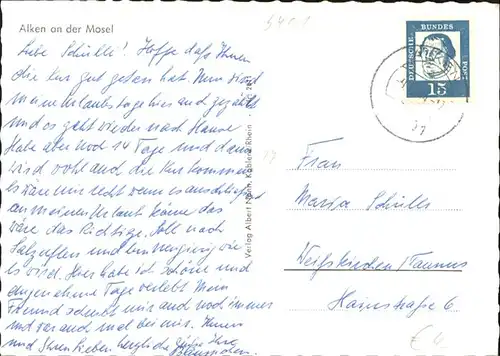 Alken an der Mosel
5401
Liebe Schülli! Hoffe daß Ihnen
die Kur gut getan hat. Nun sind
meine Urlaubstage hier auch gezählt
und es geht wieder nach Hause
Habe aber noch 14 Tage und dann
wird wohl auch die Kur kommen
es wäre mir recht wenn es anschließend
an meinen Urlaub käme das
wäre das Richtige. Soll nach
Salzuflen und bin neugierig wie
es wird. Hier habe ich schöne und
angenehme Tage verlebt. Mein
Freund schreibt mir auch noch immer
und war auch mal bei mir. Ihnen
und Ihren Lieben herzliche Grüße Ihre
Verlag Albert Koblenz/Rhein
DEUTSCHE BUNDES POST
15
17
Frau
Maria Schülli
Weißkirchen/Taunus
Hainstraße 6
€ 4